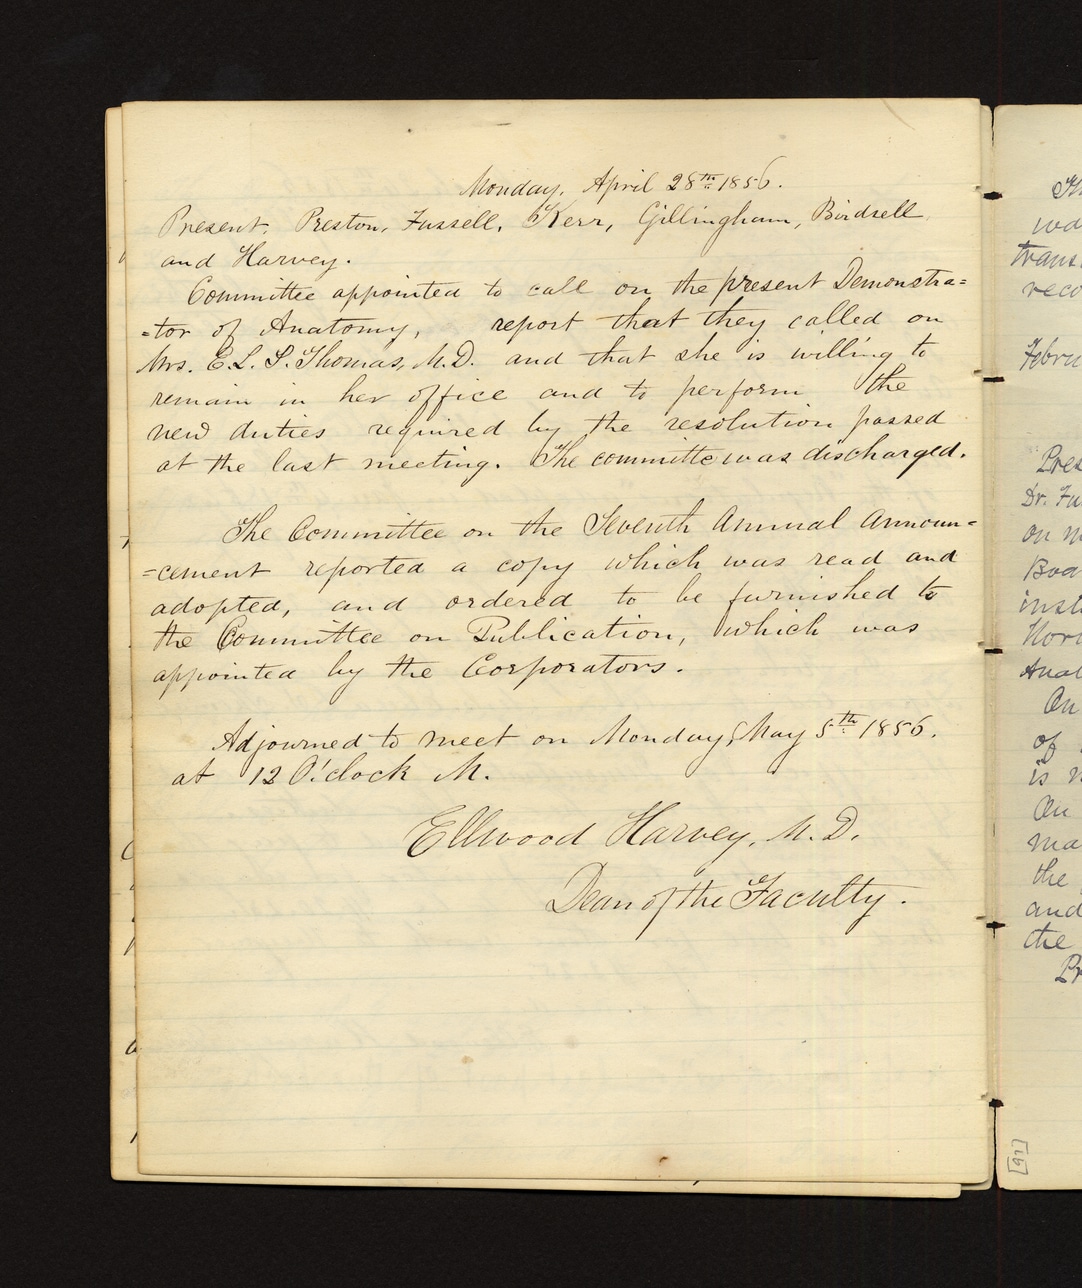 Monday, April 28th 1856.
Present, Preston, Fussell, Kerr, Gillingham, Birdsell
and Harvey.
Committee appointed to call on the present Demonstra=
=tor of Anatomy, report that they called on
Mrs. E. L. S. Thomas, M.D. and that she is willing to
remain in her office and to perform the
new duties required by the resolution passed
at the last meeting. The committe was discharged.
The Committee on the Seventh Annual Announ=
=cement reported a copy which was read and
adopted, and ordered to be furnished to
the Committee on Publication, which was
appointed by the Corporators.
Adjourned to meet on Monday, May 5th 1856.
at 12 O'.clock M.
Ellwood Harvey, M.D.
Dean of the Faculty.
trans
reco
Febru
Pres
Dr. Fu
on m
Boa
inst
Anat
On
of
is
On
ma
the
and
the
Pr
[91]